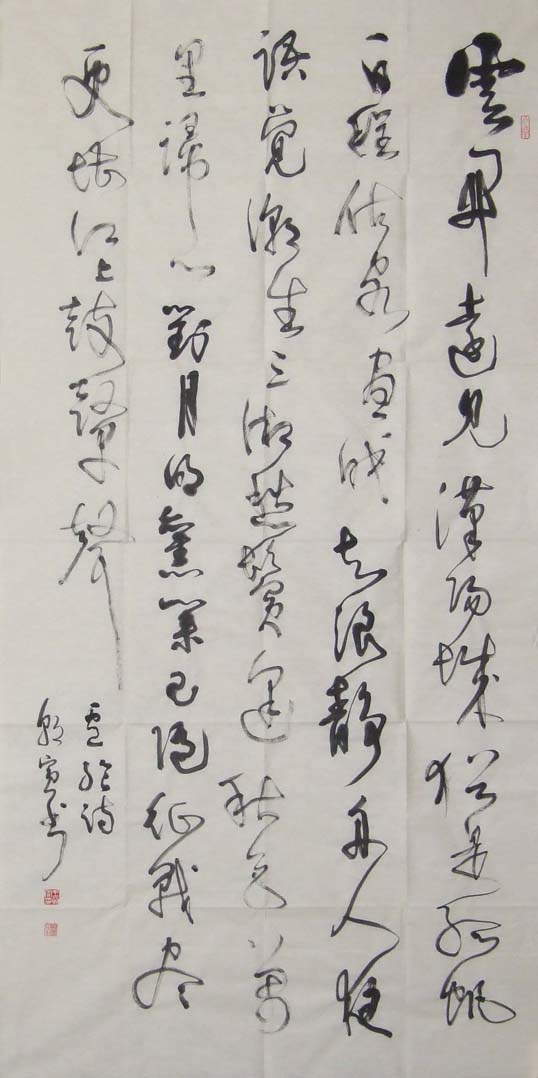 雲開遠見漢陽城猶是孤帆
一日程估客晝眠知浪靜舟人夜
語覺潮生三湘愁鬢逢秋色萬
里歸心對月明舊業已隨征戰尽
更堪江上鼓鼙聲
盧綸詩